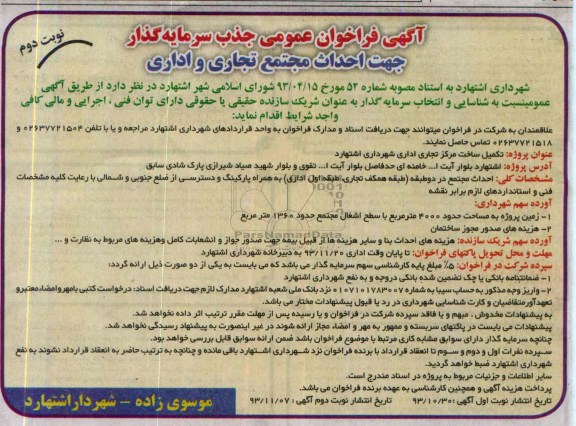 نوبت دوم
آگهی فراخوان عمومی جذب سرمایه‌گذار
جهت احداث مجتمع تجاری و اداری
شهرداری اشتهارد به استناد مصوبه شماره ۵۲ مورخ ۹۳/۰۴/۱۵ شورای اسلامی شهر اشتهارد در نظر دارد از طریق آگهی
عمومینسبت به شناسایی و انتخاب سرمایه گذار به عنوان شریک سازنده حقیقی یا حقوقی دارای توان فنی ، اجرایی و مالی کافی
واجد شرایط اقدام نماید:
علاقمندان به شرکت در فراخوان میتوانند جهت دریافت اسناد و مدارک فراخوان به واحد قراردادهای شهرداری اشتهارد مراجعه و یا با تلفن ۰۲۶۳۷۷۲۱۵۰۴ و
۰۲۶۳۷۷۲۱۵۱۸ تماس حاصل نمایند.
عنوان پروژه: تکمیل ساخت مرکز تجاری اداری شهرداری اشتهارد
آدرس پروژه: اشتهارد بلوار آیت ا... خامنه ای حدفاصل بلوار آیت ا... تقوی و بلوار شهید صیاد شیرازی پارک شادی سابق
مشخصات کلی: احداث مجتمع در دوطبقه (طبقه همکف تجاری، طبقه اول اداری) به همراه پارکینگ و دسترسی از ضلع جنوبی و شمالی با رعایت کلیه مشخصات
فنی و استانداردهای لازم برابر نقشه
آورده سهم شهرداری:
۱- زمین پروژه به مساحت حدود ۴۰۰۰ مترمربع با سطح اشغال مجتمع حدود ۱۳۶۰ متر مربع
۲- هزینه های صدور مجوز ساختمان
آورده سهم شریک سازنده: هزینه های احداث بنا و سایر هزینه ها از قبیل بیمه جهت صدور جواز و انشعابات کامل وهزینه های مربوط به نظارت و ...
مهلت و محل تحویل پاکتهای فراخوان: تا پایان وقت اداری ۹۳/۱۱/۲۰ به دبیرخانه شهرداری اشتهارد
سپرده شرکت در فراخوان: ۵٪ مبلغ پایه کارشناسی سهم سرمایه گذار می باشد که می بایست به یکی از دو صورت ذیل ارائه گردد:
۱- ضمانتنامه بانکی یا چک تضمین شده بانکی دروجه و به نفع شهرداری اشتهارد
۲- واریز وجه مذکور به حساب سیبا به شماره ۰۱۰۷۱۰۱۷۸۳۰۰۷ نزد بانک ملی شعبه اشتهارد مدارک لازم جهت دریافت اسناد: درخواست کتبی بامهروامضاء،معتبرو
تعهدآورمتقاضیان و کارت شناسایی شهرداری در رد یا قبول پیشنهادات مختار می باشد.
به پیشنهادات مخدوش ، مبهم و یا فاقد سپرده شرکت در فراخوان و یا رسیده پس از مهلت مقرر ترتیب اثر داده نخواهد شد.
پیشنهادات می بایست در پاکتهای سربسته و ممهور به مهر و امضاء مجاز ارائه شوند در غیر اینصورت به پیشنهاد رسیدگی نخواهد شد.
چنانچه سرمایه گذار دارای سوابق مشابه کاری مرتبط با موضوع فراخوان باشد ضمن ارائه سوابق قابل بررسی خواهد بود.
سپرده نفرات اول و دوم و سوم تا انعقاد قرارداد با برنده فراخوان نزد شهرداری اشتهارد باقی مانده و چنانچه به ترتیب حاضر به انعقاد قرارداد نشوند به نفع
شهرداری اشتهارد ضبط خواهد گردید.
سایر اطلاعات و جزئیات مربوط به پروژه در اسناد مندرج است.
پرداخت هزینه آگهی و همچنین کارشناسی به عهده برنده فراخوان می باشد.
تاریخ انتشار نوبت اول آگهی : ۹۳/۱۰/۳۰ تاریخ انتشار نوبت دوم آگهی : ۹۳/۱۱/۰۷
موسوی زاده - شهردار اشتهارد
ParsNamadData